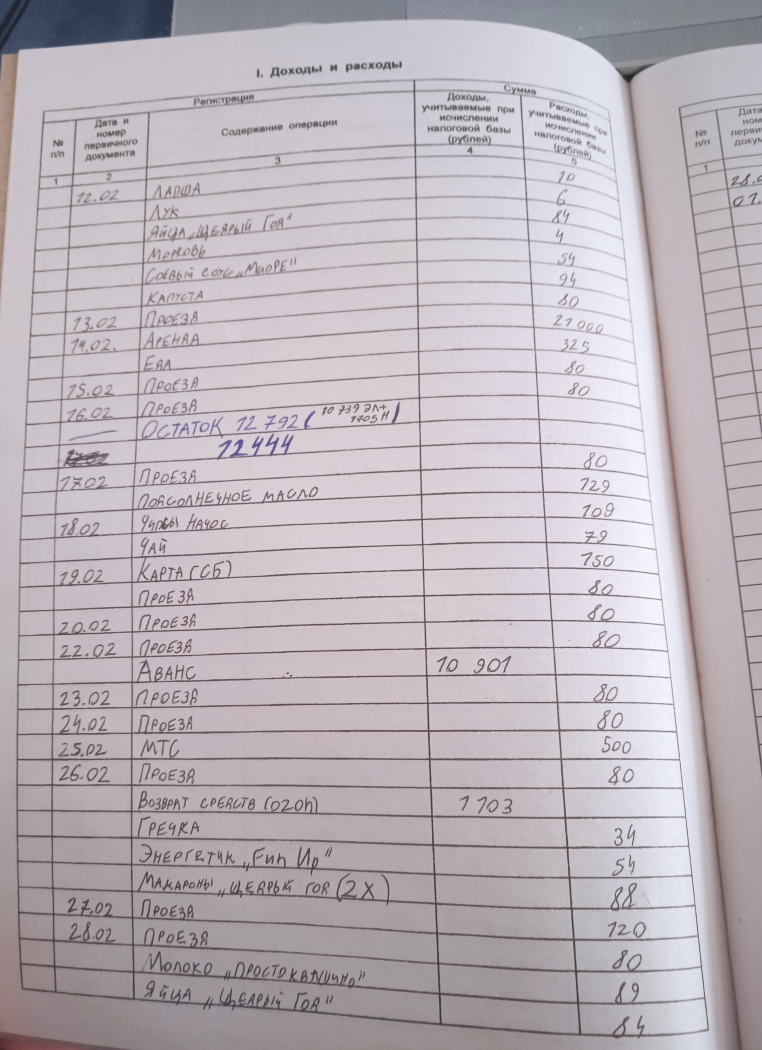 I. Доходы и расходы
Регистрация Сумма
№ п/п Дата и номер первичного документа Содержание операции Доходы, учитываемые при исчислении налоговой базы (рублей) Расходы, учитываемые при исчислении налоговой базы (рублей)
1 2 3 4 5
12.02 ЛАПША 10
ЛУК 6
ЯЙЦА „ЩЕДРЫЙ ГОД" 84
МОРКОВЬ 4
СОЕВЫЙ СОУС „МИОРЕ" 54
КАПУСТА 94
13.02 ПРОЕЗД 80
14.02. АРЕНДА 21000
ЕДА 325
15.02 ПРОЕЗД 80
16.02 ПРОЕЗД 80
ОСТАТОК 12 792 (10 739 ЭЛ+ 1705 Н)
12444
17.02 ПРОЕЗД 80
ПОДСОЛНЕЧНОЕ МАСЛО 129
18.02 ЧИПСЫ НАЧОС 109
ЧАЙ 79
19.02 КАРТА (СБ) 150
ПРОЕЗД 80
20.02 ПРОЕЗД 80
22.02 ПРОЕЗД 80
АВАНС 10 901
23.02 ПРОЕЗД 80
24.02 ПРОЕЗД 80
25.02 МТС 500
26.02 ПРОЕЗД 80
ВОЗВРАТ СРЕДСТВ (OZON) 1 103
ГРЕЧКА 34
ЭНЕРГЕТИК „Fип Ир" 54
МАКАРОНЫ „ЩЕДРЫЙ ГОД (2Х) 88
27.02 ПРОЕЗД 120
28.02 ПРОЕЗД 80
МОЛОКО „ПРОСТОКВАШИНО" 89
ЯЙЦА „ЩЕДРЫЙ ГОД" 84
№ п/п
1
28.
01.